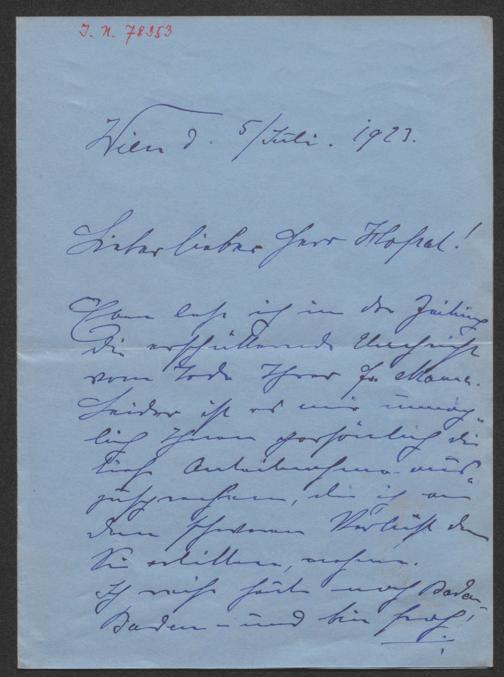 I. N. 78353
Wien d. 5/Juli. 1923.
Lieber lieber Herr Hofrat!
lese ich in der Zeitung
die erschütternde Nachricht
vom Tode Ihrer Fr. Mama.
Leider ist es mir unmög-
lich Ihnen persönlich die
tiefe Anteilnahme aus-
zusprechen, die ich an
dem schweren Verluste den
Sie erlitten, nehme.
Ich reise heute nach Baden-
Baden – und bin froh!